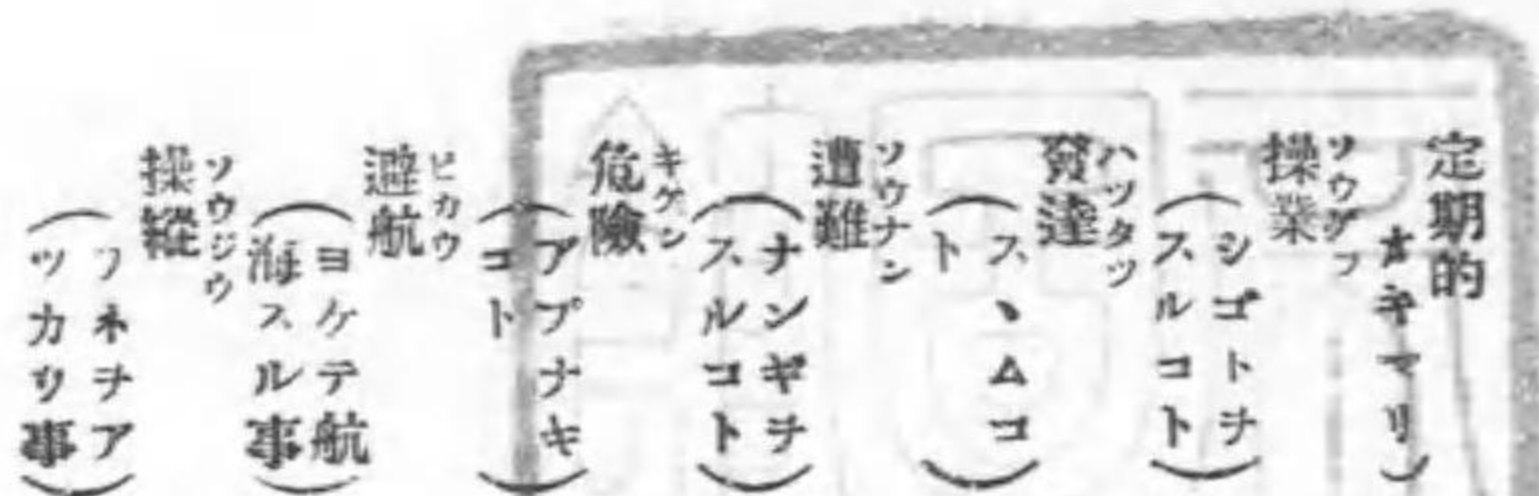 定期的
キマリ)
操業
ソウゲフ
(シゴトヲ
スルコト)
發達
ハツタツ
(スヽムコ
ト)
遭難
ソウナン
(ナンギヲ
スルコト)
危險
キケン
(アブナキ
コト)
避航
ヒカウ
(ヨケテ航
海スル事)
操縱
ソウジウ
(フネヲア
ツカウ事)